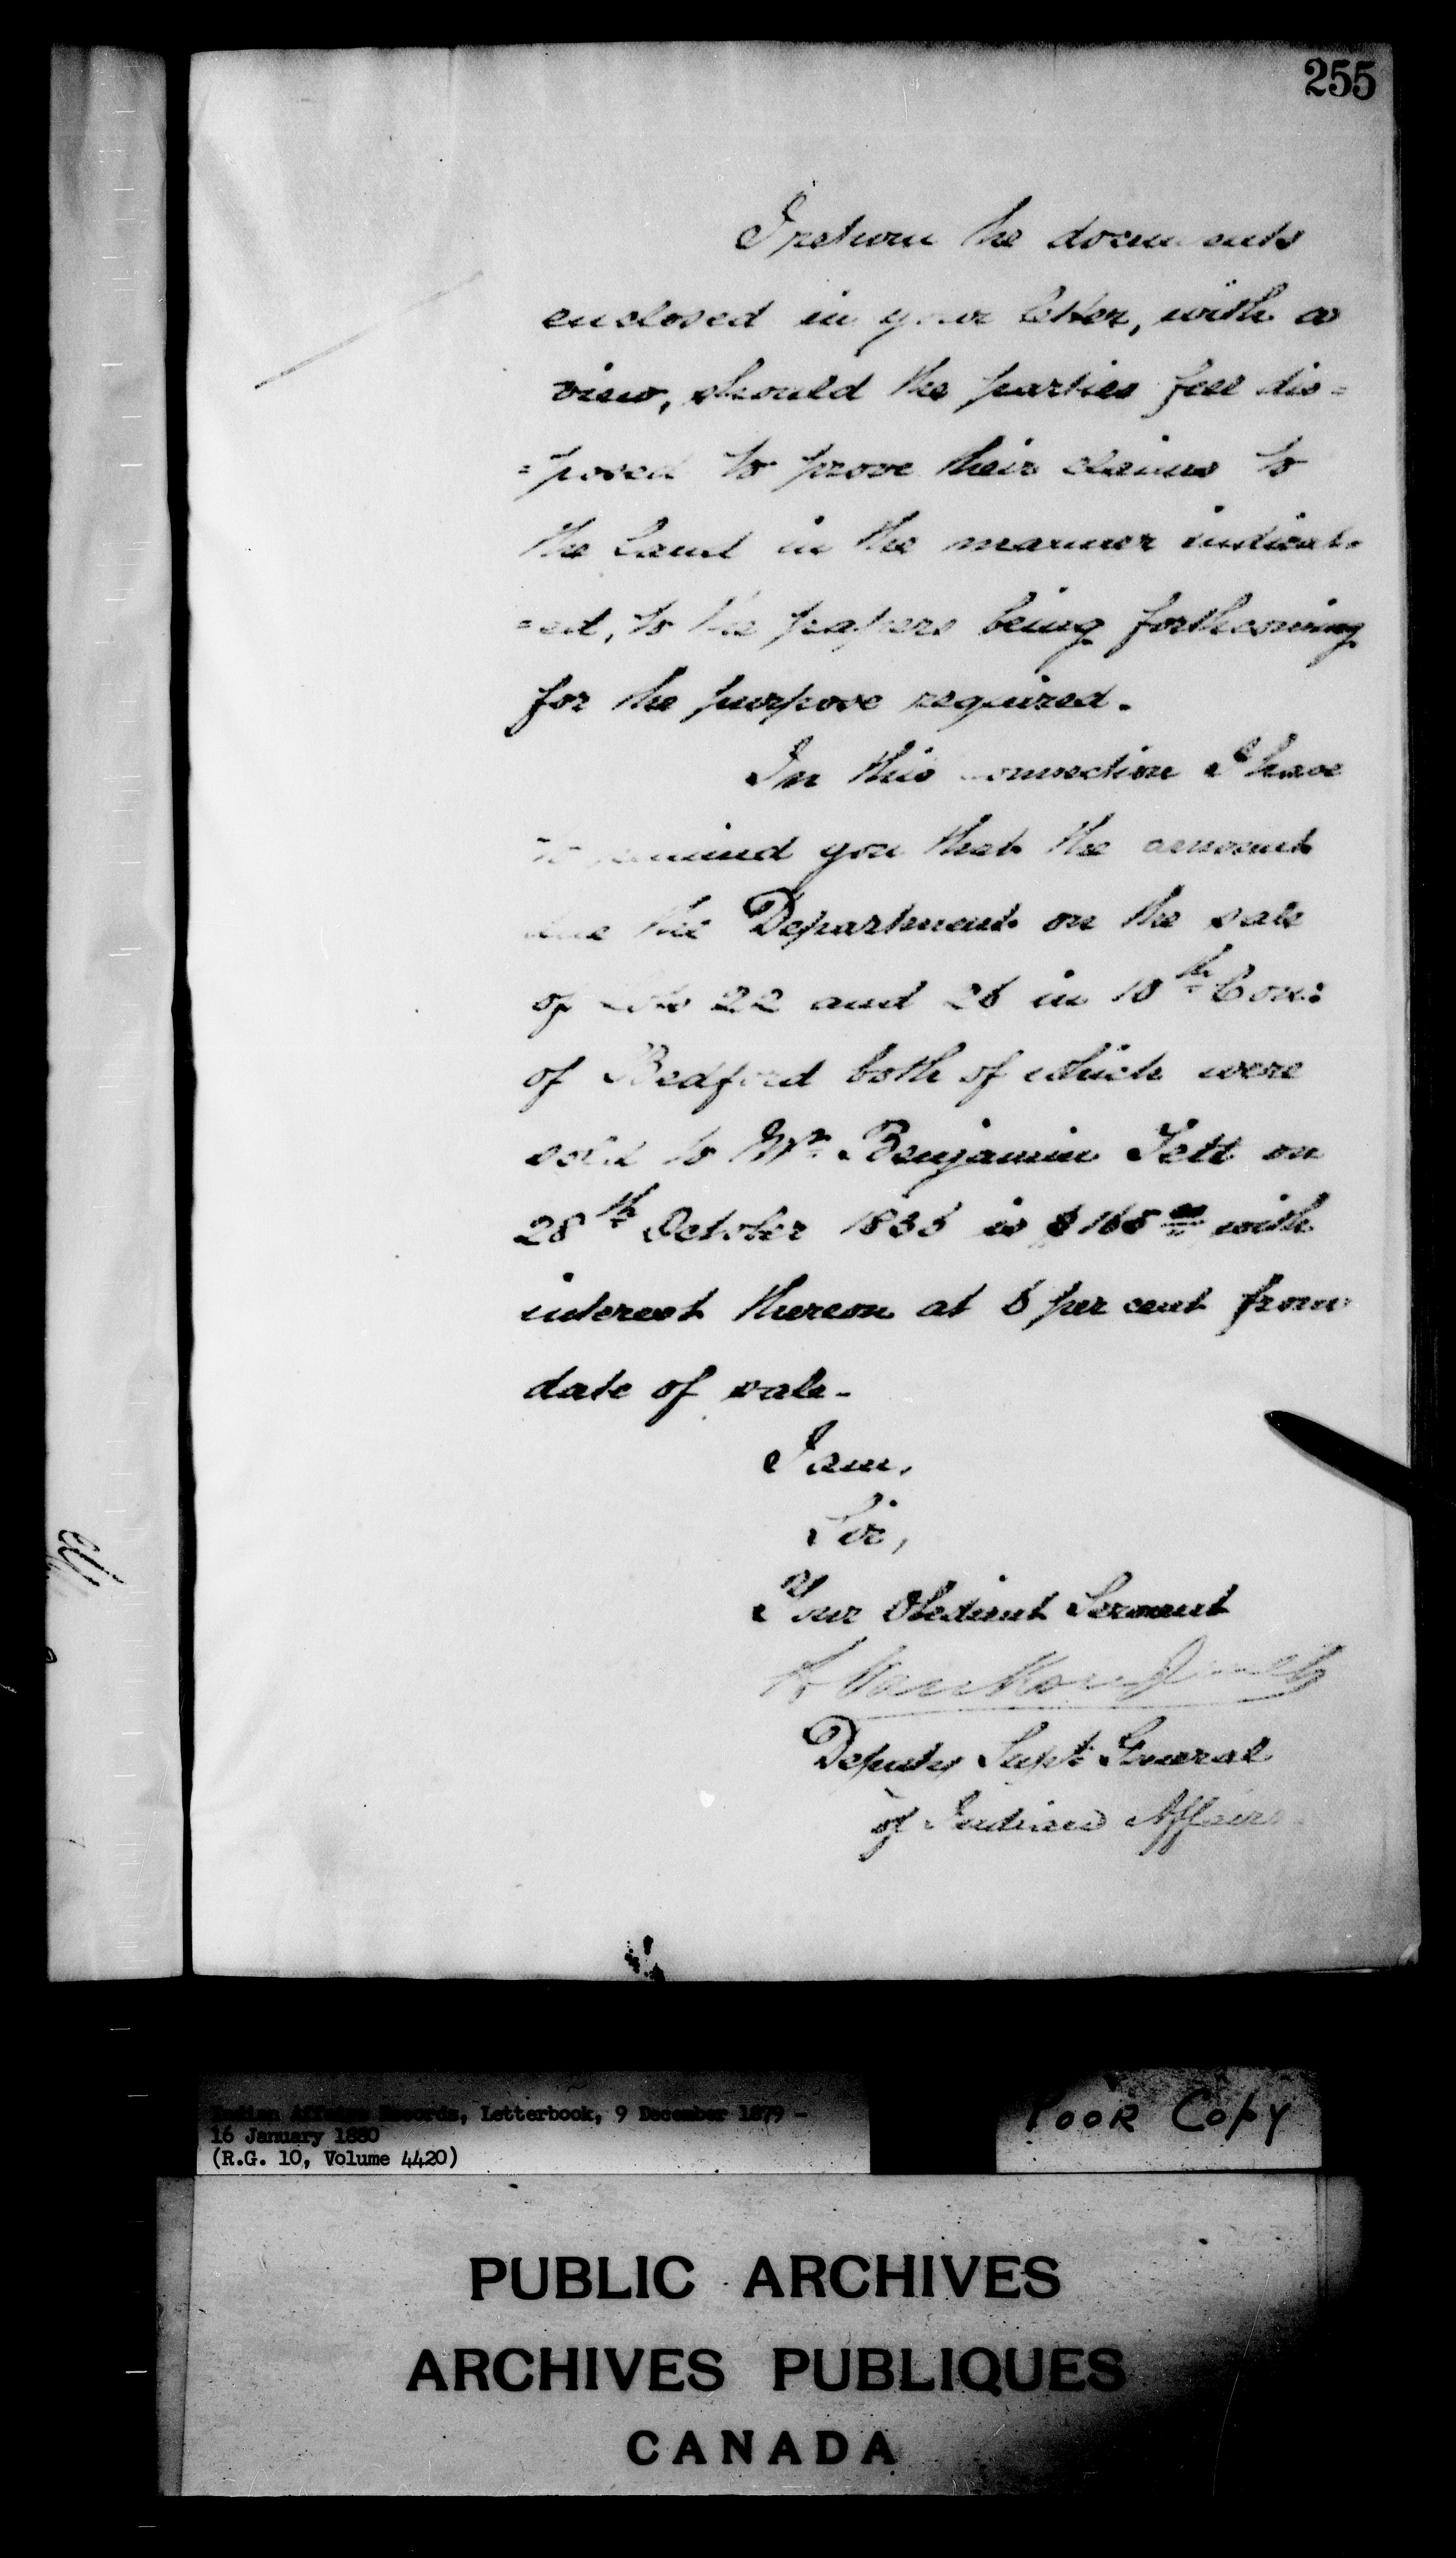 255
I return the documents
enclosed in your letter, with a
view, should the parties feel dis=
=posed to prove their claims to
the land in the manner indicat-
=ed, to the papers being forthcoming
for the purpose required.
In this connection I have
to remind you that the amount
due the Department on the sale
of Lots 22 and 26 in 10th Con:
of Bedford both of which were
sold to Mr. Benjamin Tett on
28th October 1835 is $165 00 with
interest thereon at 6 per cent from
date of sale-
I am,
Sir,
Your Obedient Servant
L VanKoughnet
Deputy Supt General
of Indian Affairs
Indian Affairs Records, Letterbook, 9 December 1879 -
16 January 1880
(R.G. 10, Volume 4420)
POOR COPY
PUBLIC ARCHIVES
ARCHIVES PUBLIQUES
CANADA